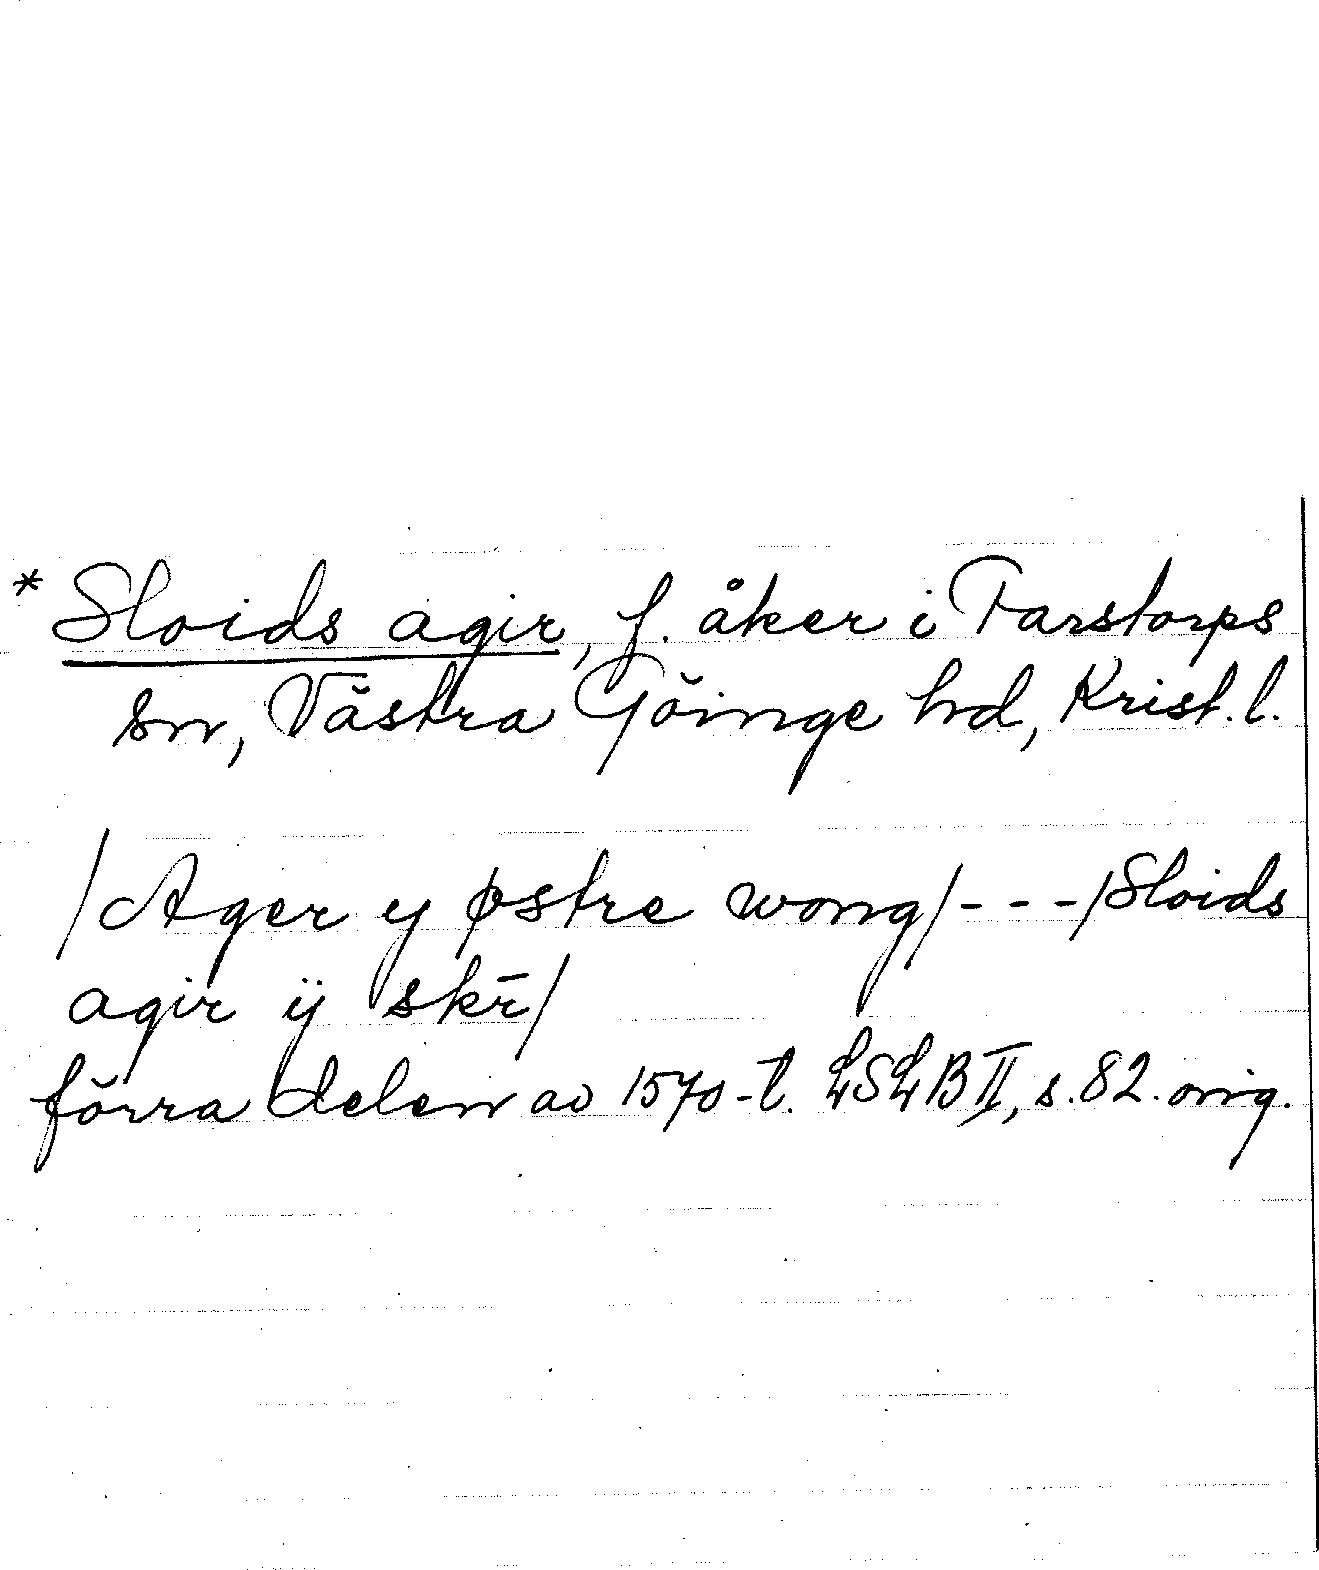 * Sloids agir, f. åker i Farstorps
sn, Västra Göinge hd, Krist. l.
/Ager y østre wong/---/Sloids
agir ij skr̄/
förra delen av 1570-t. LSLB II, s. 82. orig.